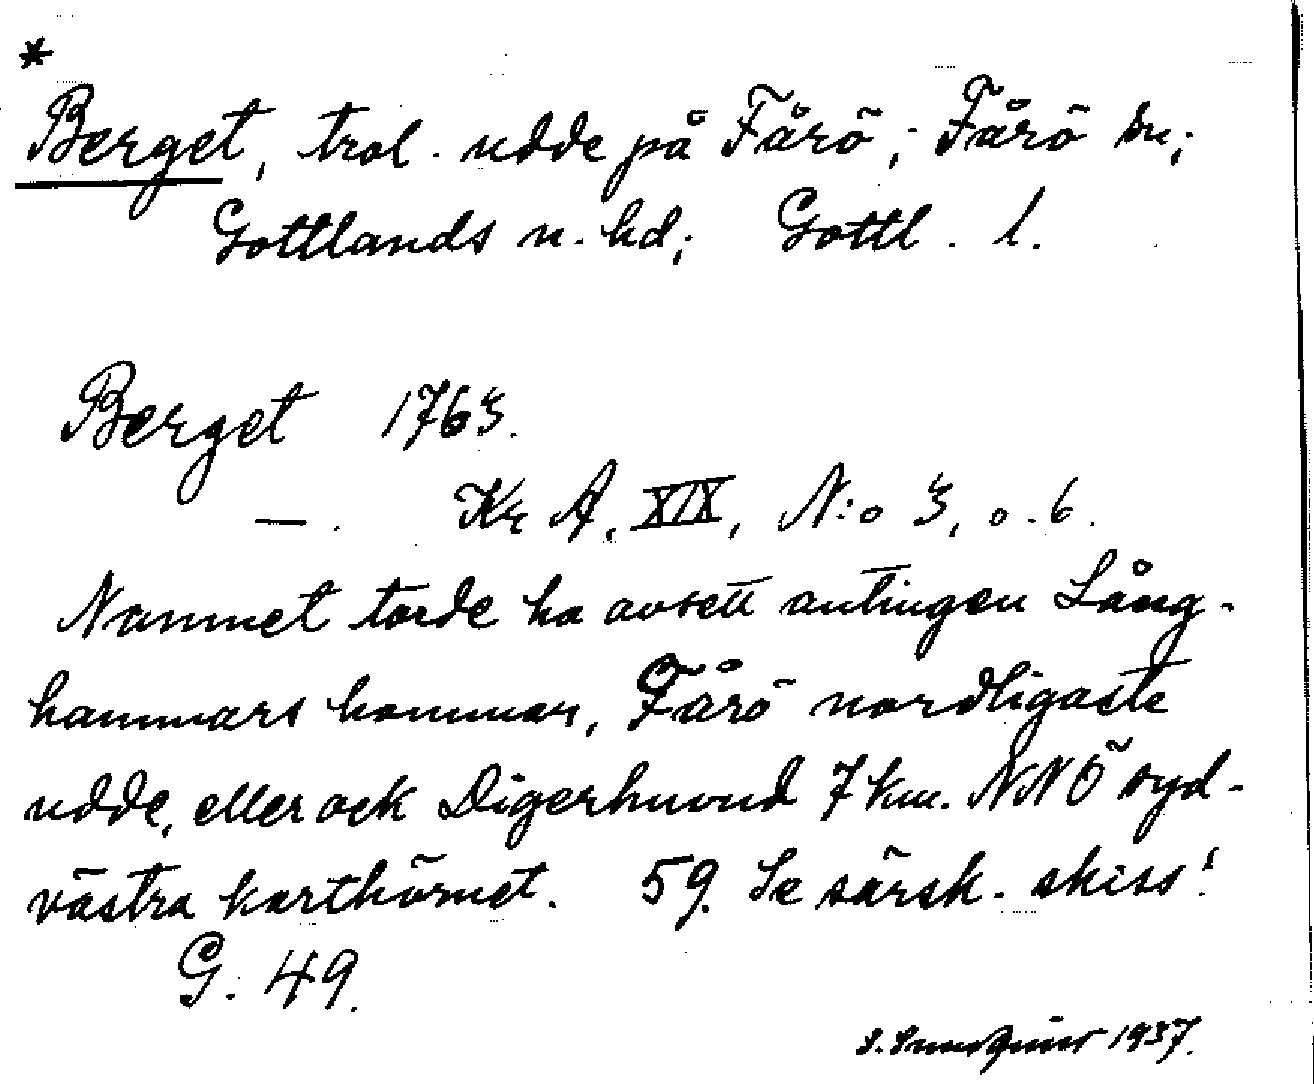 *
Berget, trol. udde på Fårö; Fårö sn;
Gottlands n. hd; Gottl. l.
Berget 1763.
—. Kr A, XIX, N:o 3, o. 6.
Namnet torde ha avsett antingen Lång-
hammars hammar, Fårö nordligaste
udde, eller ock Digerhuvud 7 km. NNÖ syd-
västra karthörnet. 59. Se särsk. skiss!
G. 49.
1937.